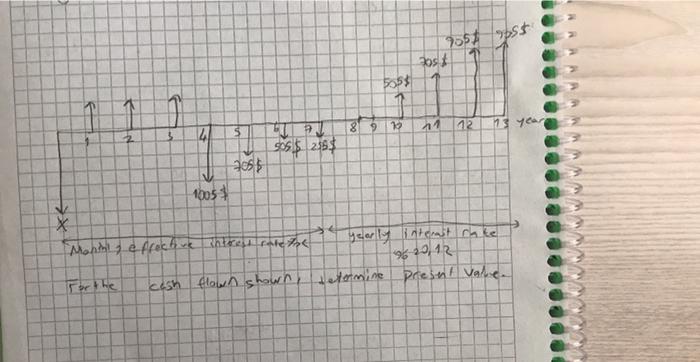 905$ 905$
705$
505$
1 2 3 4 5 6 7 8 9 10 11 12 13 year
505$ 255$
705$
1005$
X
effective interest rate yearly interest rate
% 20,12
For the cash flown shown, determine present value.